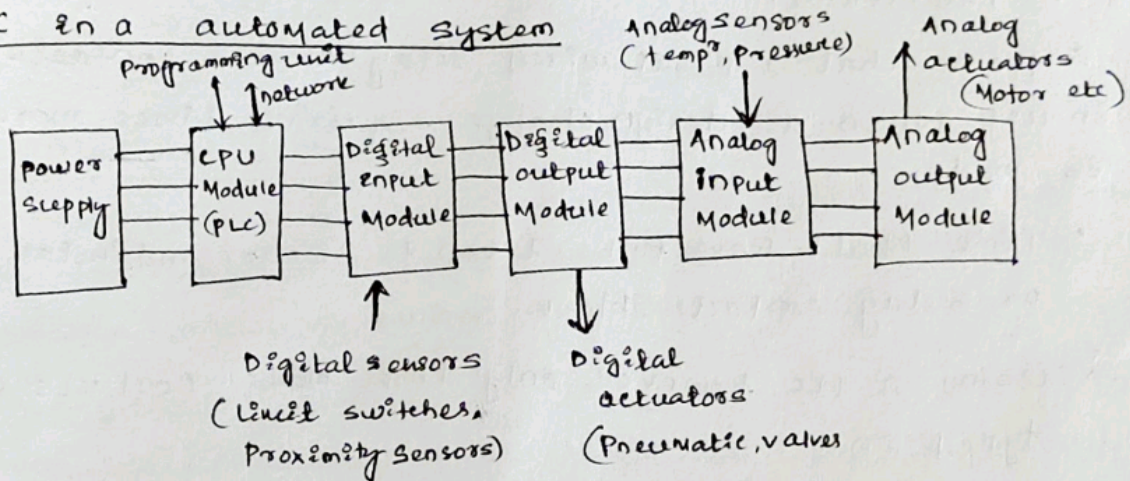 in a automated system
Programming unit
network
Analog sensors
(tempr, pressure)
Analog
actuators
(Motor etc)
power
supply
CPU
Module
(PLC)
Digital
input
Module
Digital
output
Module
Analog
input
Module
Analog
output
Module
Digital sensors
(Limit switches,
Proximity sensors)
Digital
actuators
(Pneumatic, valves